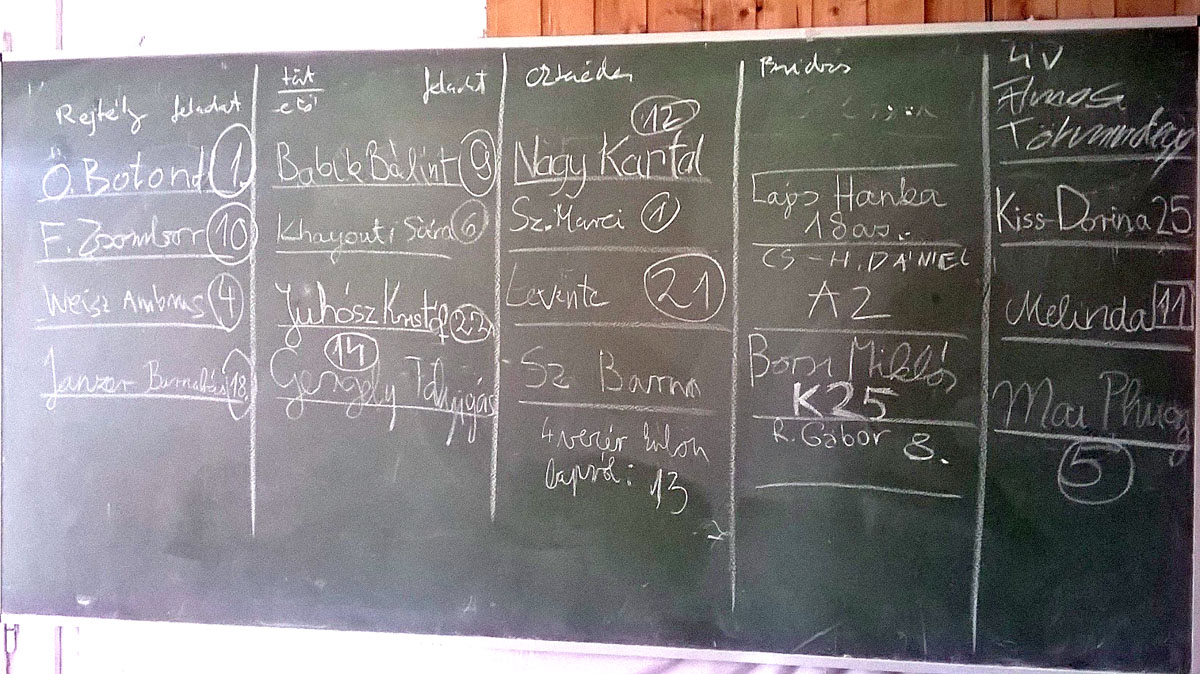 Rejtély feladat
Ö. Botond 1
F. Zsombor 10
Weisz Ambrus 4
Janzer Barnabás 18
feladat
Babik Bálint 9
Khayouti Sára 6
Juhász Kristóf 22
14
Gergely
12
Nagy Kartal
Sz. Marci 1
Levente 21
Sz Barna
4 vezér külön
lapról: 13
Lajos Hanka
18as.
CS-H. DÁNIEL
A2
Bors Miklós
K25
R. Gábor 8.
4V
Álmos
Kiss Dorina 25
Melinda 11
Mai Phuong
5